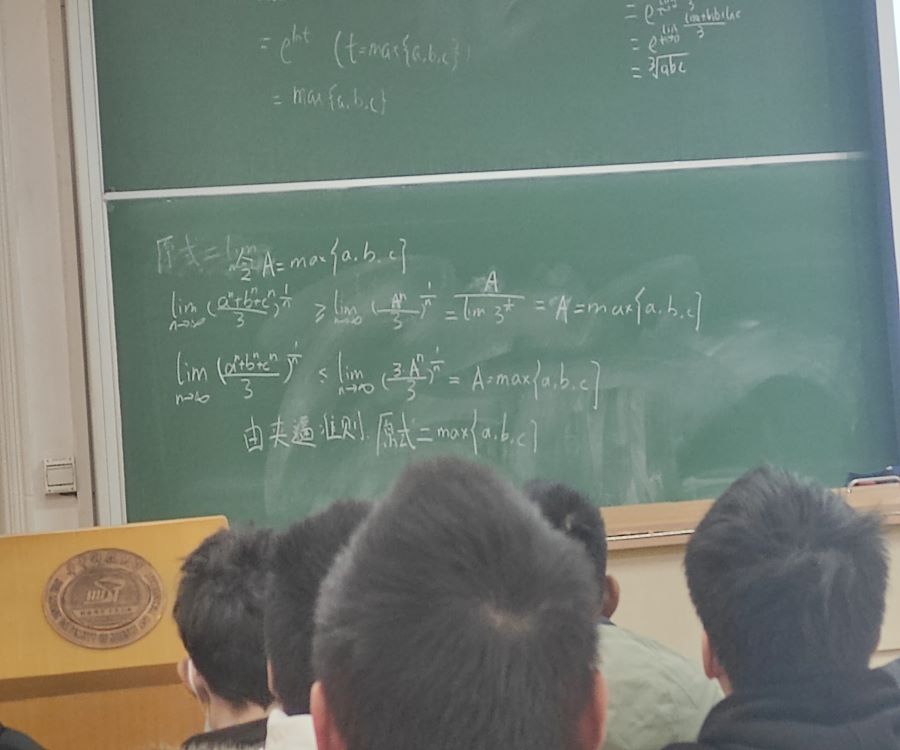 = e^{lnt} (t=max{a,b,c})
= max{a.b.c}
= e^{\frac{lna+lnb+lnc}{3}}
= \sqrt[3]{abc}
原式=lim
令A=max{a.b.c}
\lim_{n→∞} (\frac{a^n+b^n+c^n}{3})^{\frac{1}{n}} ≥ \lim_{n→∞} (\frac{A^n}{3})^{\frac{1}{n}} = \frac{A}{lim 3^{\frac{1}{n}}} = A=max{a.b.c}
\lim_{n→∞} (\frac{a^n+b^n+c^n}{3})^{\frac{1}{n}} ≤ \lim_{n→∞} (\frac{3·A^n}{3})^{\frac{1}{n}} = A=max{a.b.c}
由夹逼准则.原式=max{a.b.c}